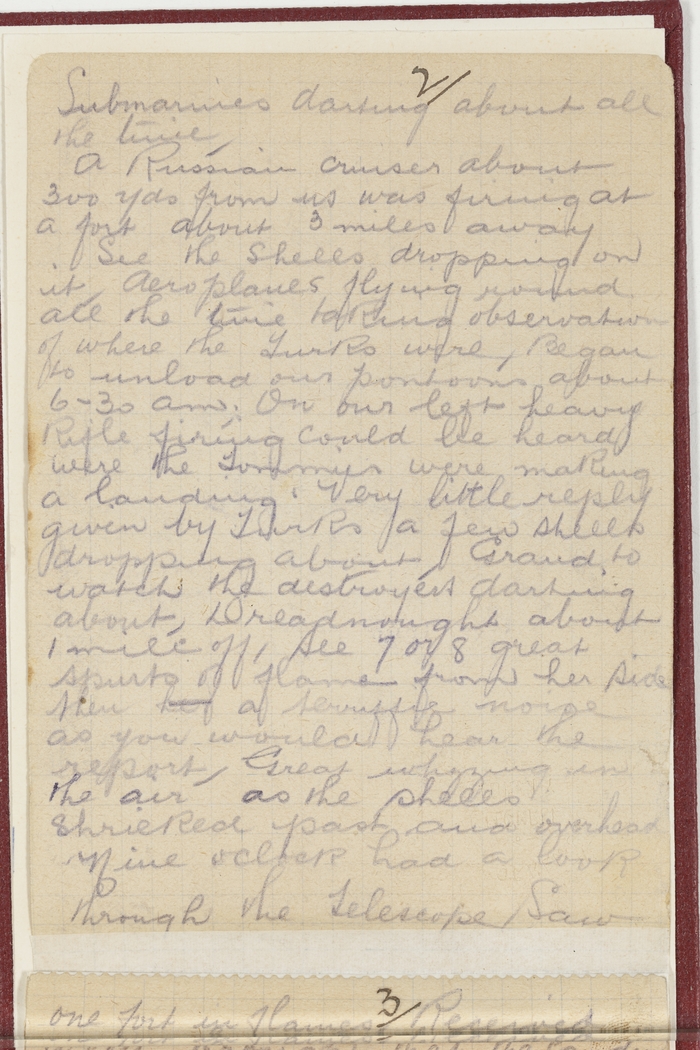 2/
Submarines darting about all
the time,
A Russian cruiser about
300 yds from us was firing at
a fort about 3 miles away
. See the shells dropping on
it, Aeroplanes flying round
all the time taking observation
of where the Turks were, Began
to unload our pontoons about
6-30 am. On our left heavy
Rifle firing could be heard
were the Tommies were making
a landing. Very little reply
given by Turks a few shells
dropping about, Grand to
watch the destroyers darting
about, Dreadnought about
1 mile off, see 7 or 8 great
spurts of flame from her side
then a terrific noise
as you would hear the
report, Great whyzing in
the air as the shells
shrieked past and overhead
Nine oclock had a look
through the Telescope, Saw
3/
one fort in flames. Received